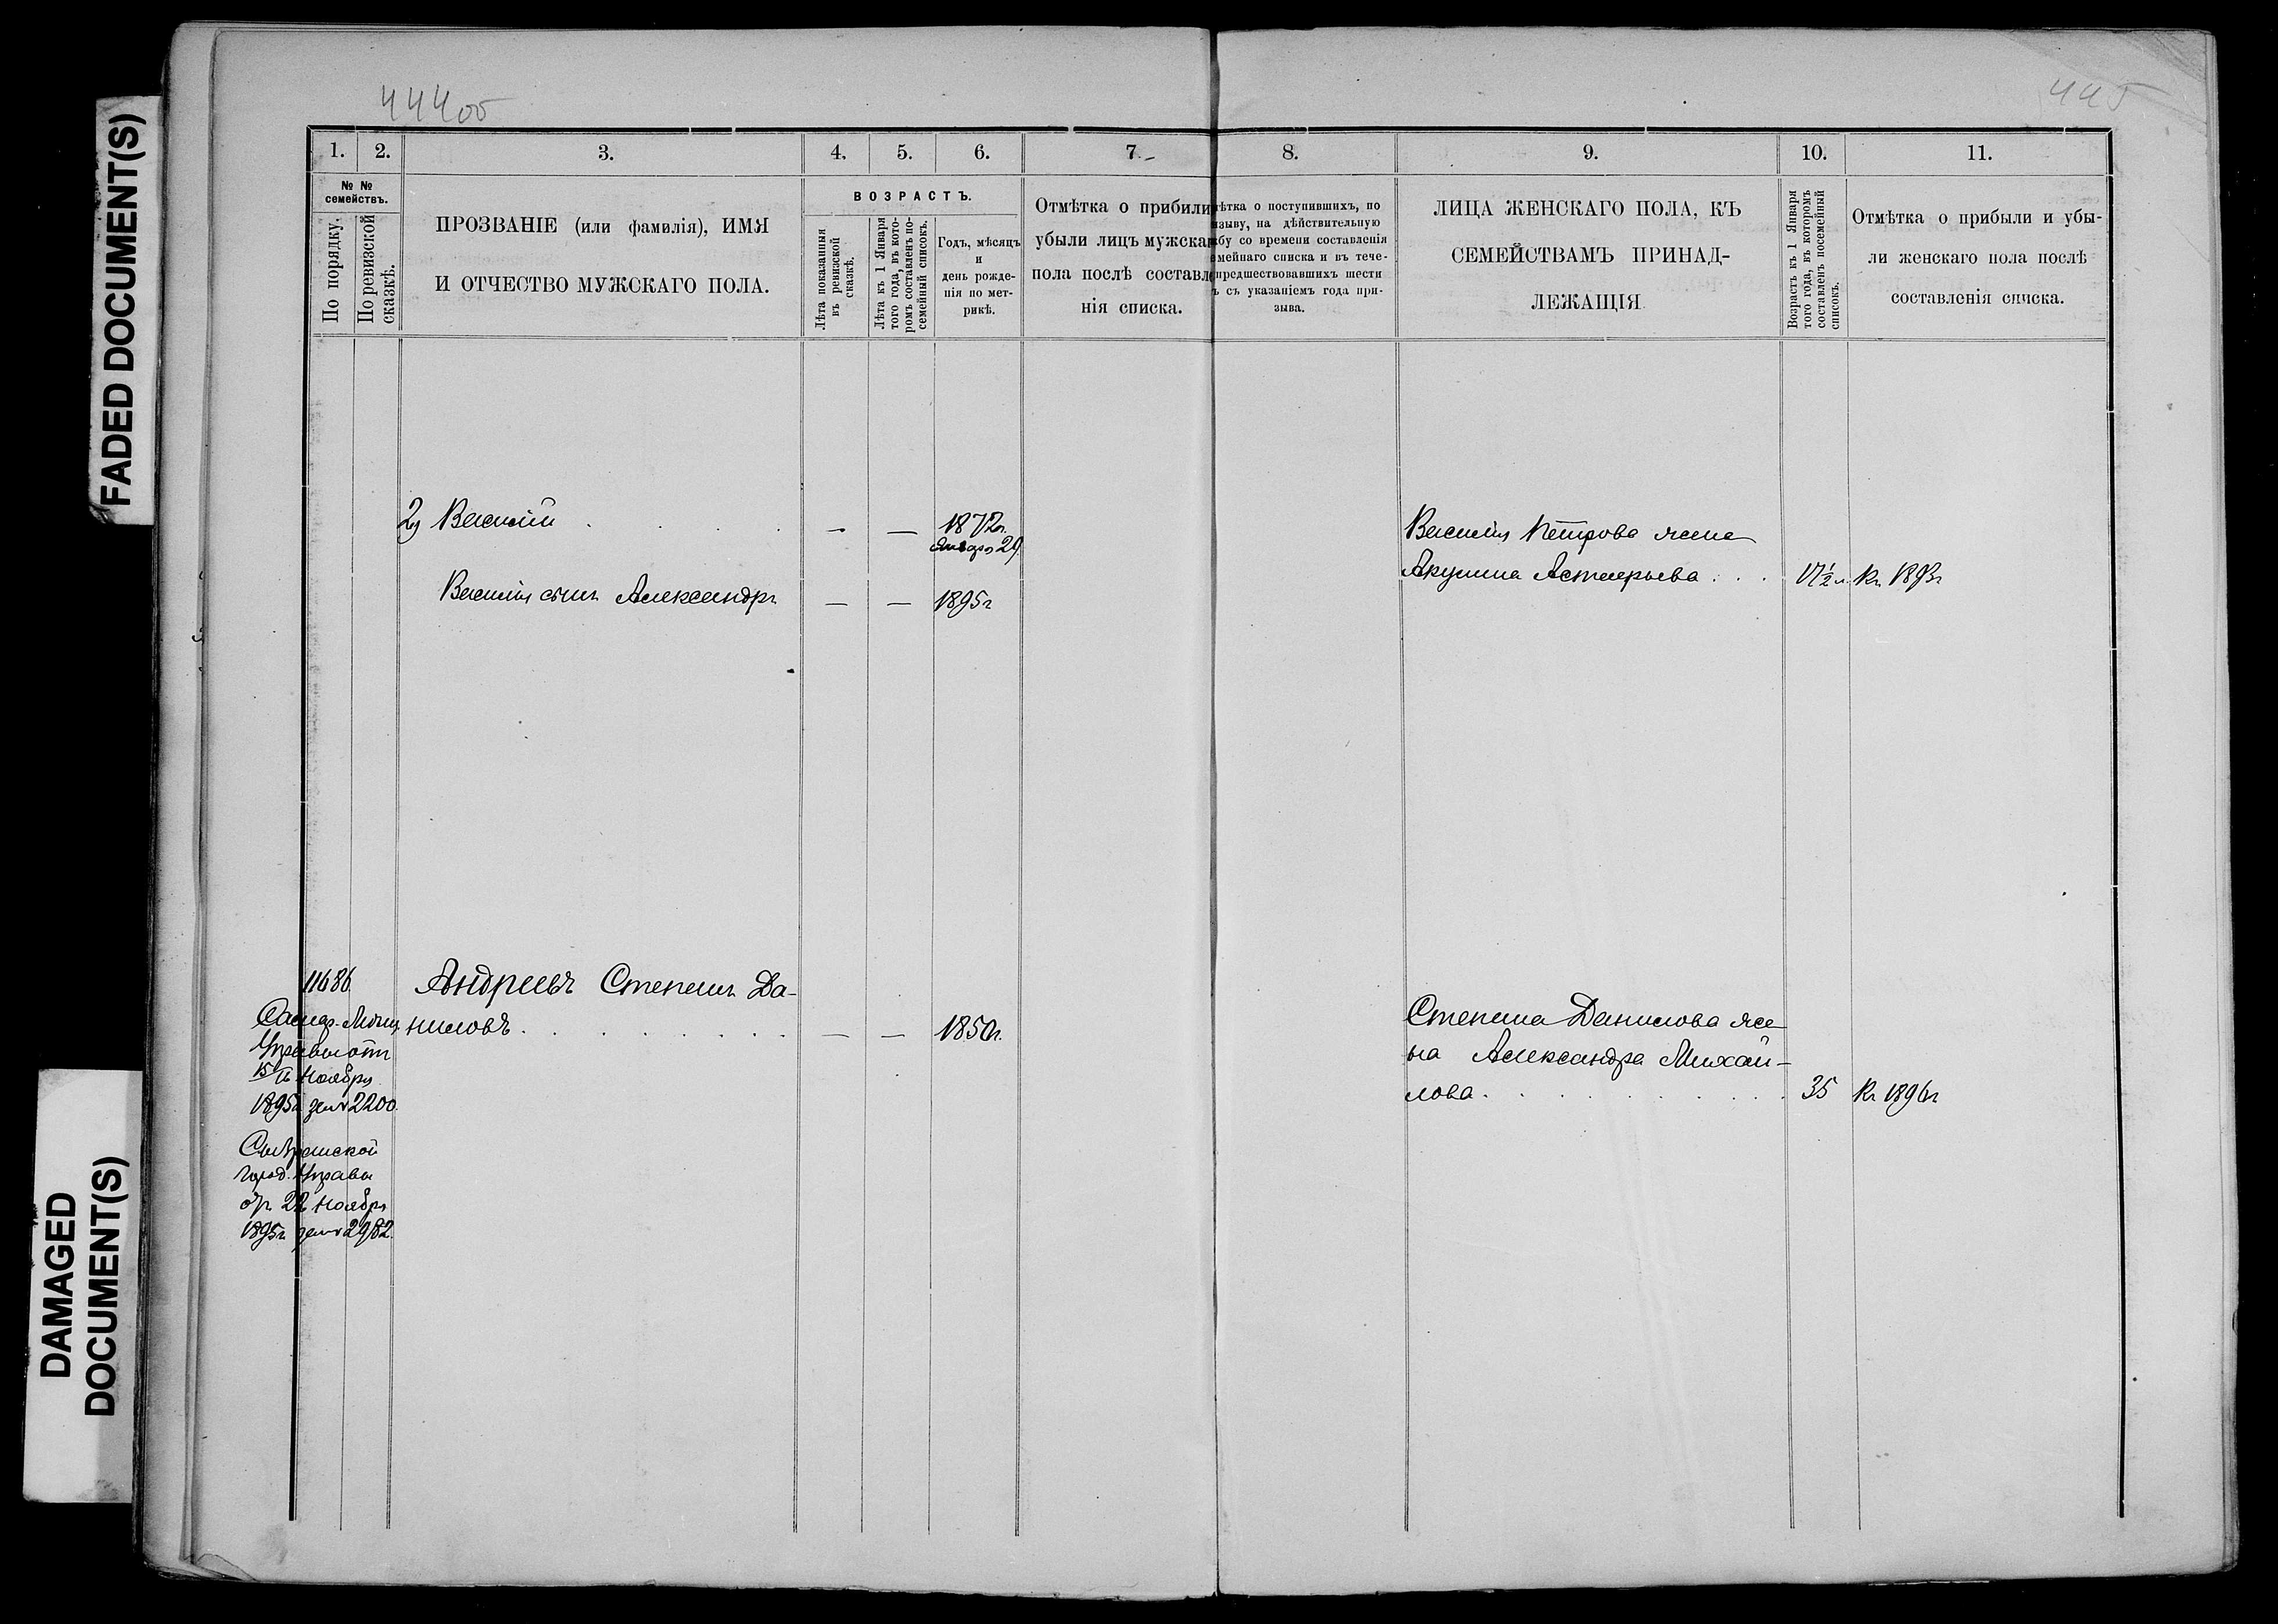 FADED DOCUMENT(S)
DAMAGED
DOCUMENT(S)
444 об
445
1.
2.
3.
4.
5.
6.
7.
8.
9.
10.
11.
№ №
семействъ.
По порядку.
По ревизской
сказкѣ.
ПРОЗВАНІЕ (или фамилія), ИМЯ
И ОТЧЕСТВО МУЖСКАГО ПОЛА.
ВОЗРАСТЪ.
Лѣта показанныя
въ ревизской
сказкѣ.
Лѣта къ 1 Января
того года, въ кото-
ромъ составленъ по-
семейный списокъ.
Годъ, мѣсяцъ
и
день рожде-
нія по мет-
рикѣ.
Отмѣтка о прибыли
убыли лицъ мужска
пола послѣ составл
нія списка.
ѣтка о поступившихъ, по
зыву, на дѣйствительную
жбу со времени составленія
емейнаго списка и въ тече-
предшествовавшихъ шести
ъ съ указаніемъ года при-
зыва.
ЛИЦА ЖЕНСКАГО ПОЛА, КЪ
СЕМЕЙСТВАМЪ ПРИНАД-
ЛЕЖАЩІЯ
Возрастъ къ 1 Января
того года, въ которомъ
составленъ посемейный
списокъ.
Отмѣтка о прибыли и убы-
ли женскаго пола послѣ
составленія списка.
2) Василій — — 1872г.
Января 29
Василія сынъ Александръ — — 1895г
Василія Петрова жена
Акулина Астафьева . . . 17½ л. Къ 1893г
11686
Андреевъ Степанъ Да-
ниловъ . . . — — 1850г.
Самар. Мѣщ.
Управы отъ
15/16 Ноября
1895г за № 2200.
Сызранской
Город. Управы
отъ 22 Ноября
1895г за № 2982.
Степана Данилова же
на Александра Михай-
лова . . . 35 Къ 1896г